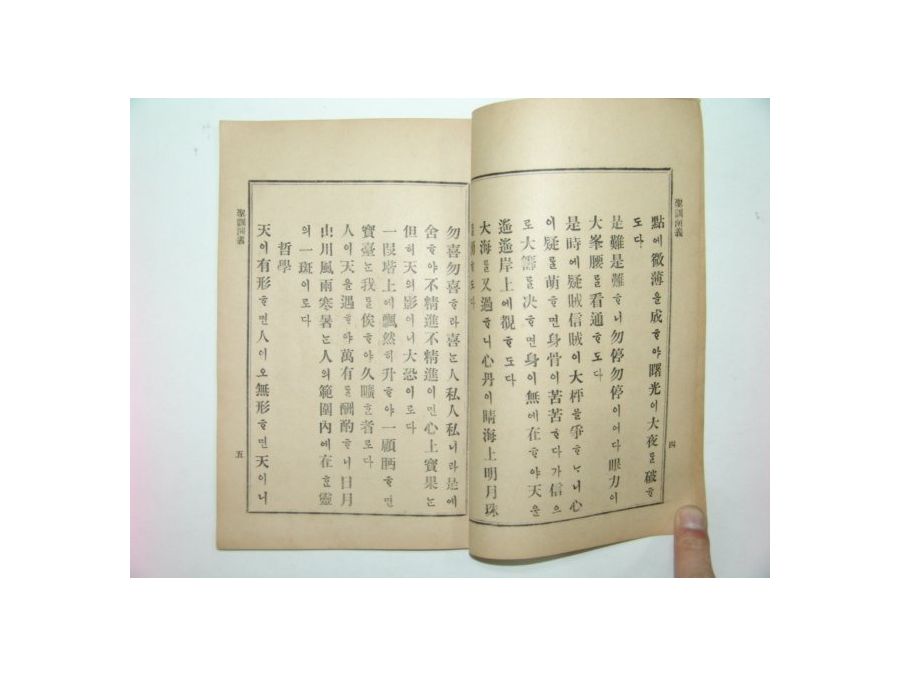 聖訓演義
四
點에微薄을成ᄒᆞ야曙光이大夜를破ᄒᆞ
도다
是難是難ᄒᆞ니勿停勿停이어다眼力이
大峯腰를看通ᄒᆞ도다
是時에疑賊信賊이大枰를爭ᄒᆞᄂᆞ니心
이疑를萌ᄒᆞ면身骨이苦苦ᄒᆞ다가信으
로大籌를决ᄒᆞ면身이無에在ᄒᆞ야天을
遙遙岸上에視ᄒᆞ도다
大海를又過ᄒᆞ니心丹이晴海上明月珠
도다
勿喜勿喜ᄒᆞ라喜ᄂᆞᆫ人私人私니라是에
舍ᄒᆞ야不精進不精進이면心上寶果ᄂᆞᆫ
但히天의影이니大恐이로다
一段塔上에飄然히升ᄒᆞ야一顧眄ᄒᆞ면
寶臺ᄂᆞᆫ我를俟ᄒᆞ야久曠ᄒᆞᆫ者로다
人이天을遇ᄒᆞ야萬有를酬酌ᄒᆞ니日月
山川風雨寒暑ᄂᆞᆫ人의範圍內에在ᄒᆞᆫ靈
의一斑이로다
哲學
天이有形ᄒᆞ면人이오無形ᄒᆞ면天이니
聖訓演義
五